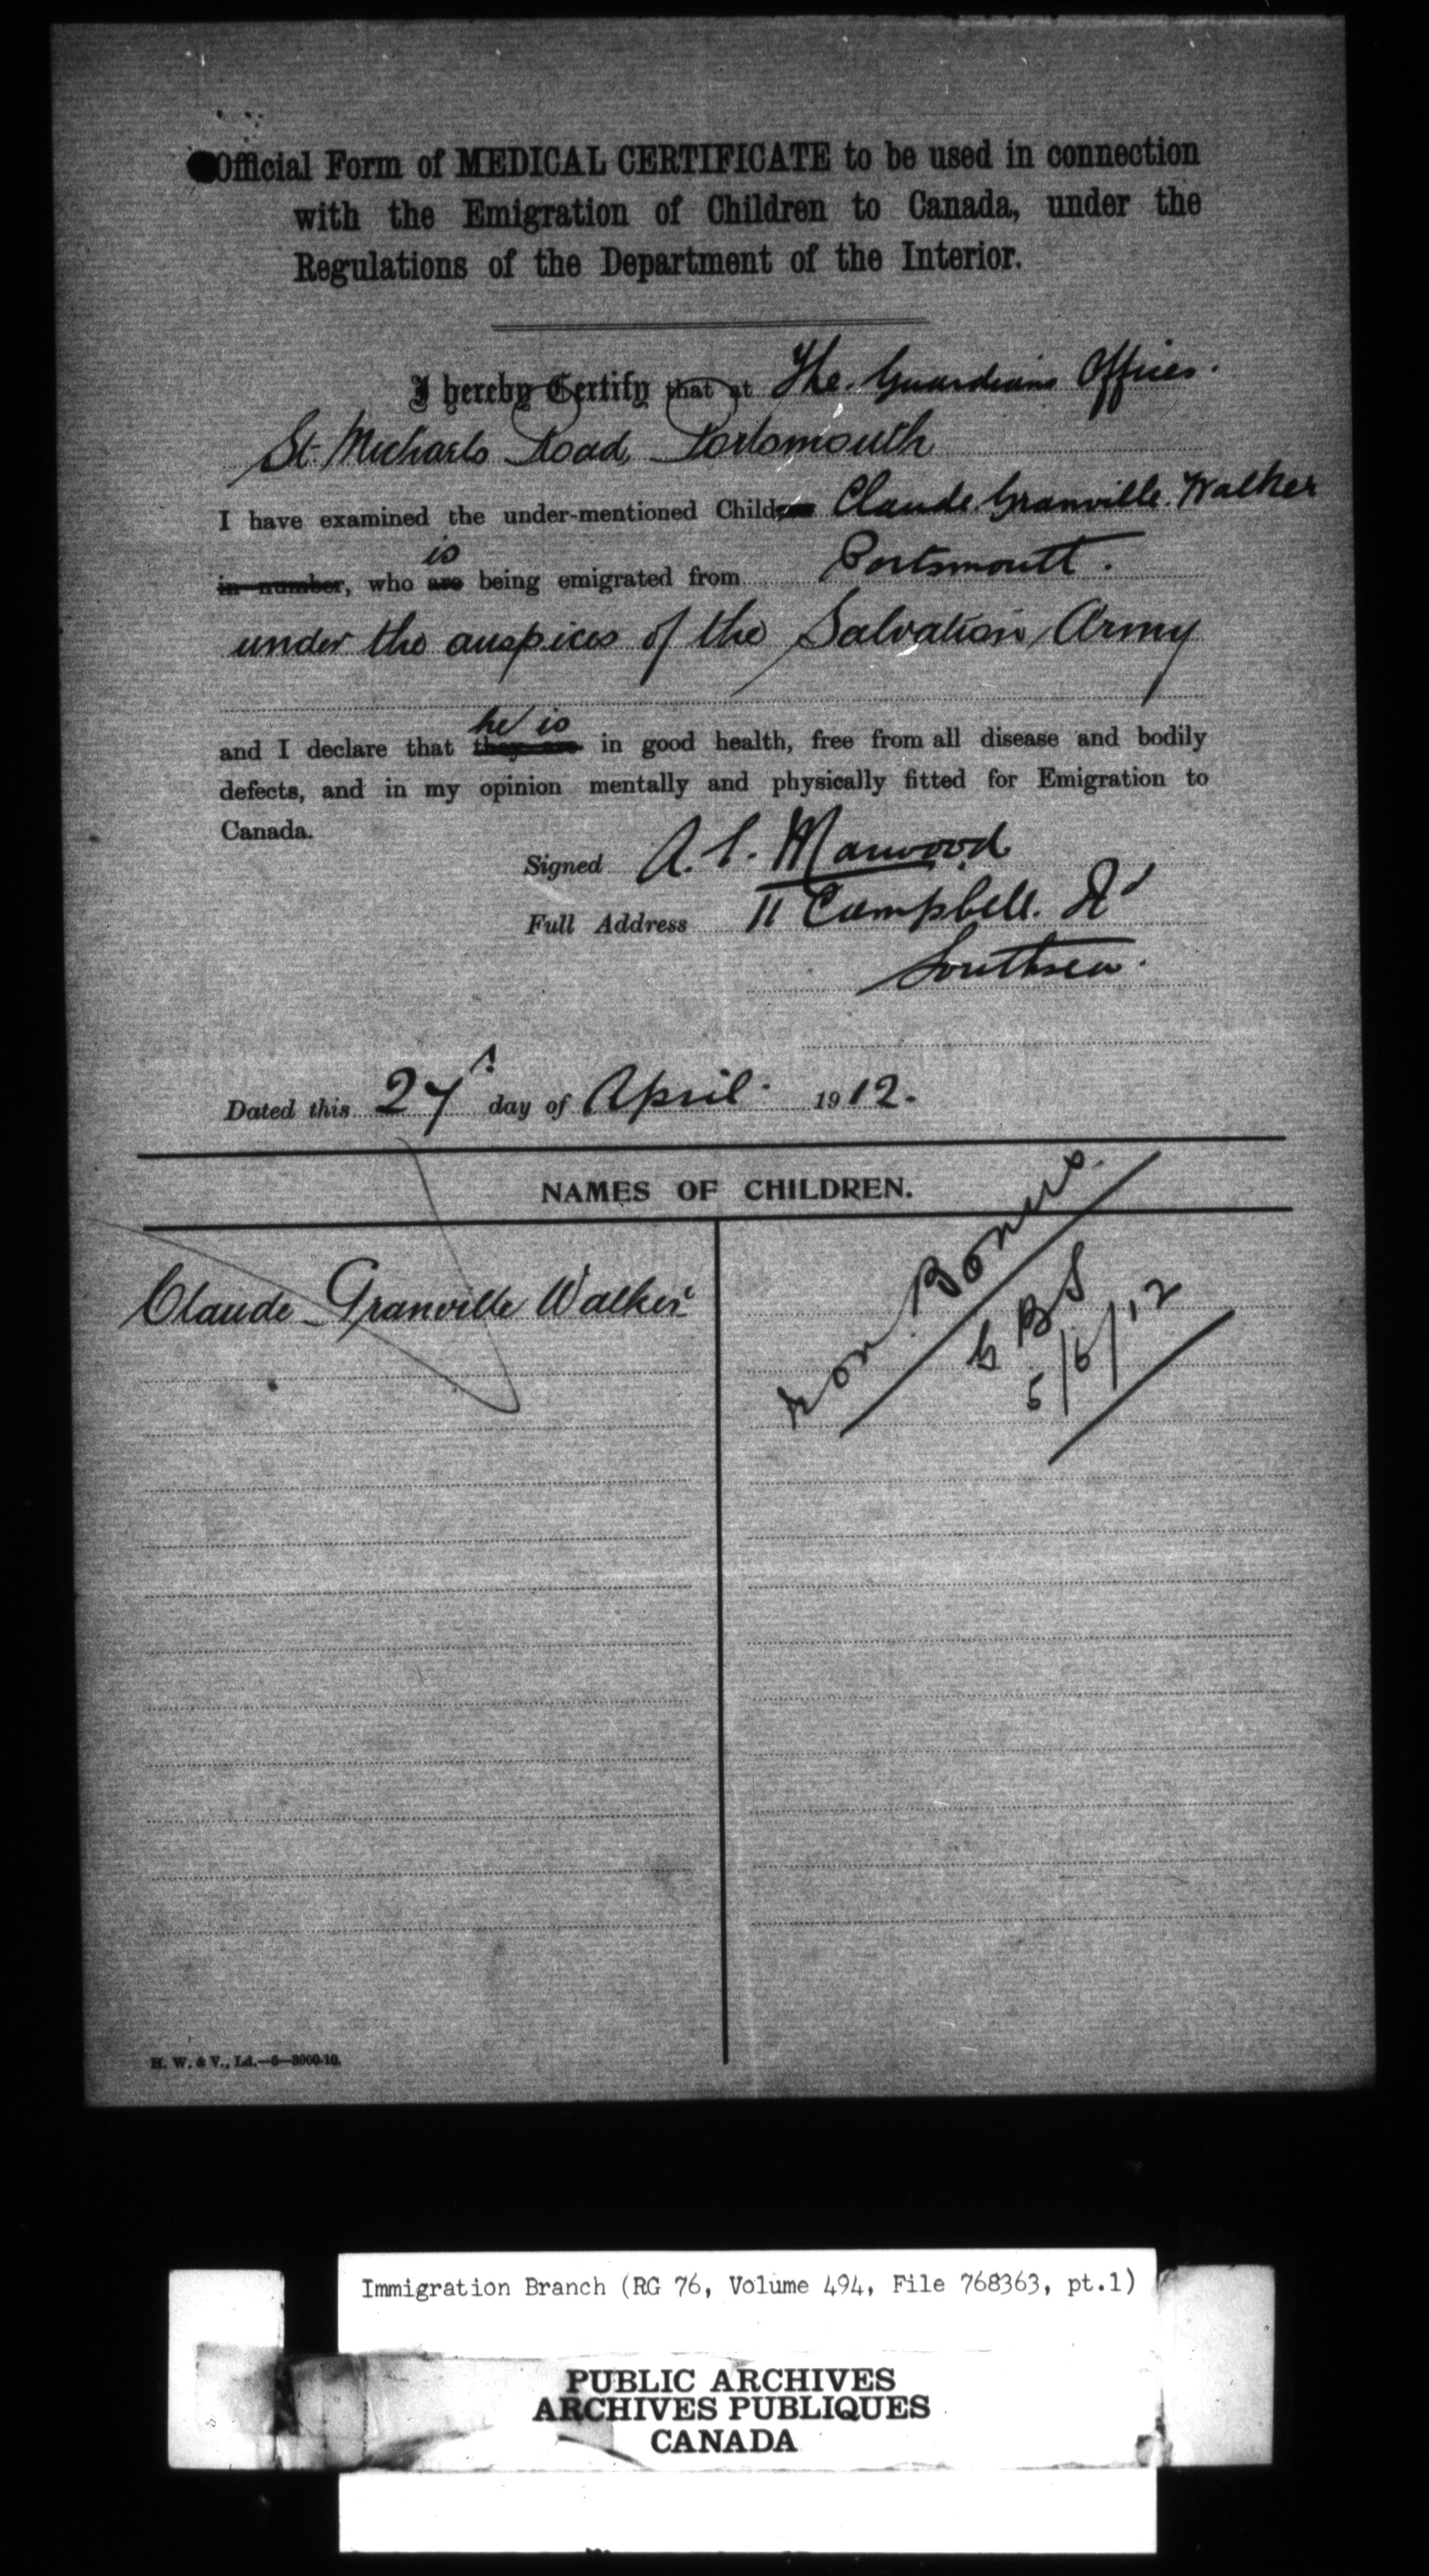 Official Form of MEDICAL CERTIFICATE to be used in connection
with the Emigration of Children to Canada, under the
Regulations of the Department of the Interior.
I hereby Certify that at The Guardians Offices.
St. Michaels Road, Portsmouth
I have examined the under-mentioned Children Claude Granville Walker
is
in number, who are being emigrated from Portsmouth.
under the auspices of the Salvation Army
he is
and I declare that they are in good health, free from all disease and bodily
defects, and in my opinion mentally and physically fitted for Emigration to
Canada.
Signed A. C. Marwood
Full Address 11 Campbell. Rd
Southsea.
Dated this 27th day of April 1912.
NAMES OF CHILDREN.
Claude Granville Walker
Non Bonus.
G B S
5/6/12
H. W. & V., Ld.—5—3000-10.
Immigration Branch (RG 76, Volume 494, File 768363, pt.1)
PUBLIC ARCHIVES
ARCHIVES PUBLIQUES
CANADA